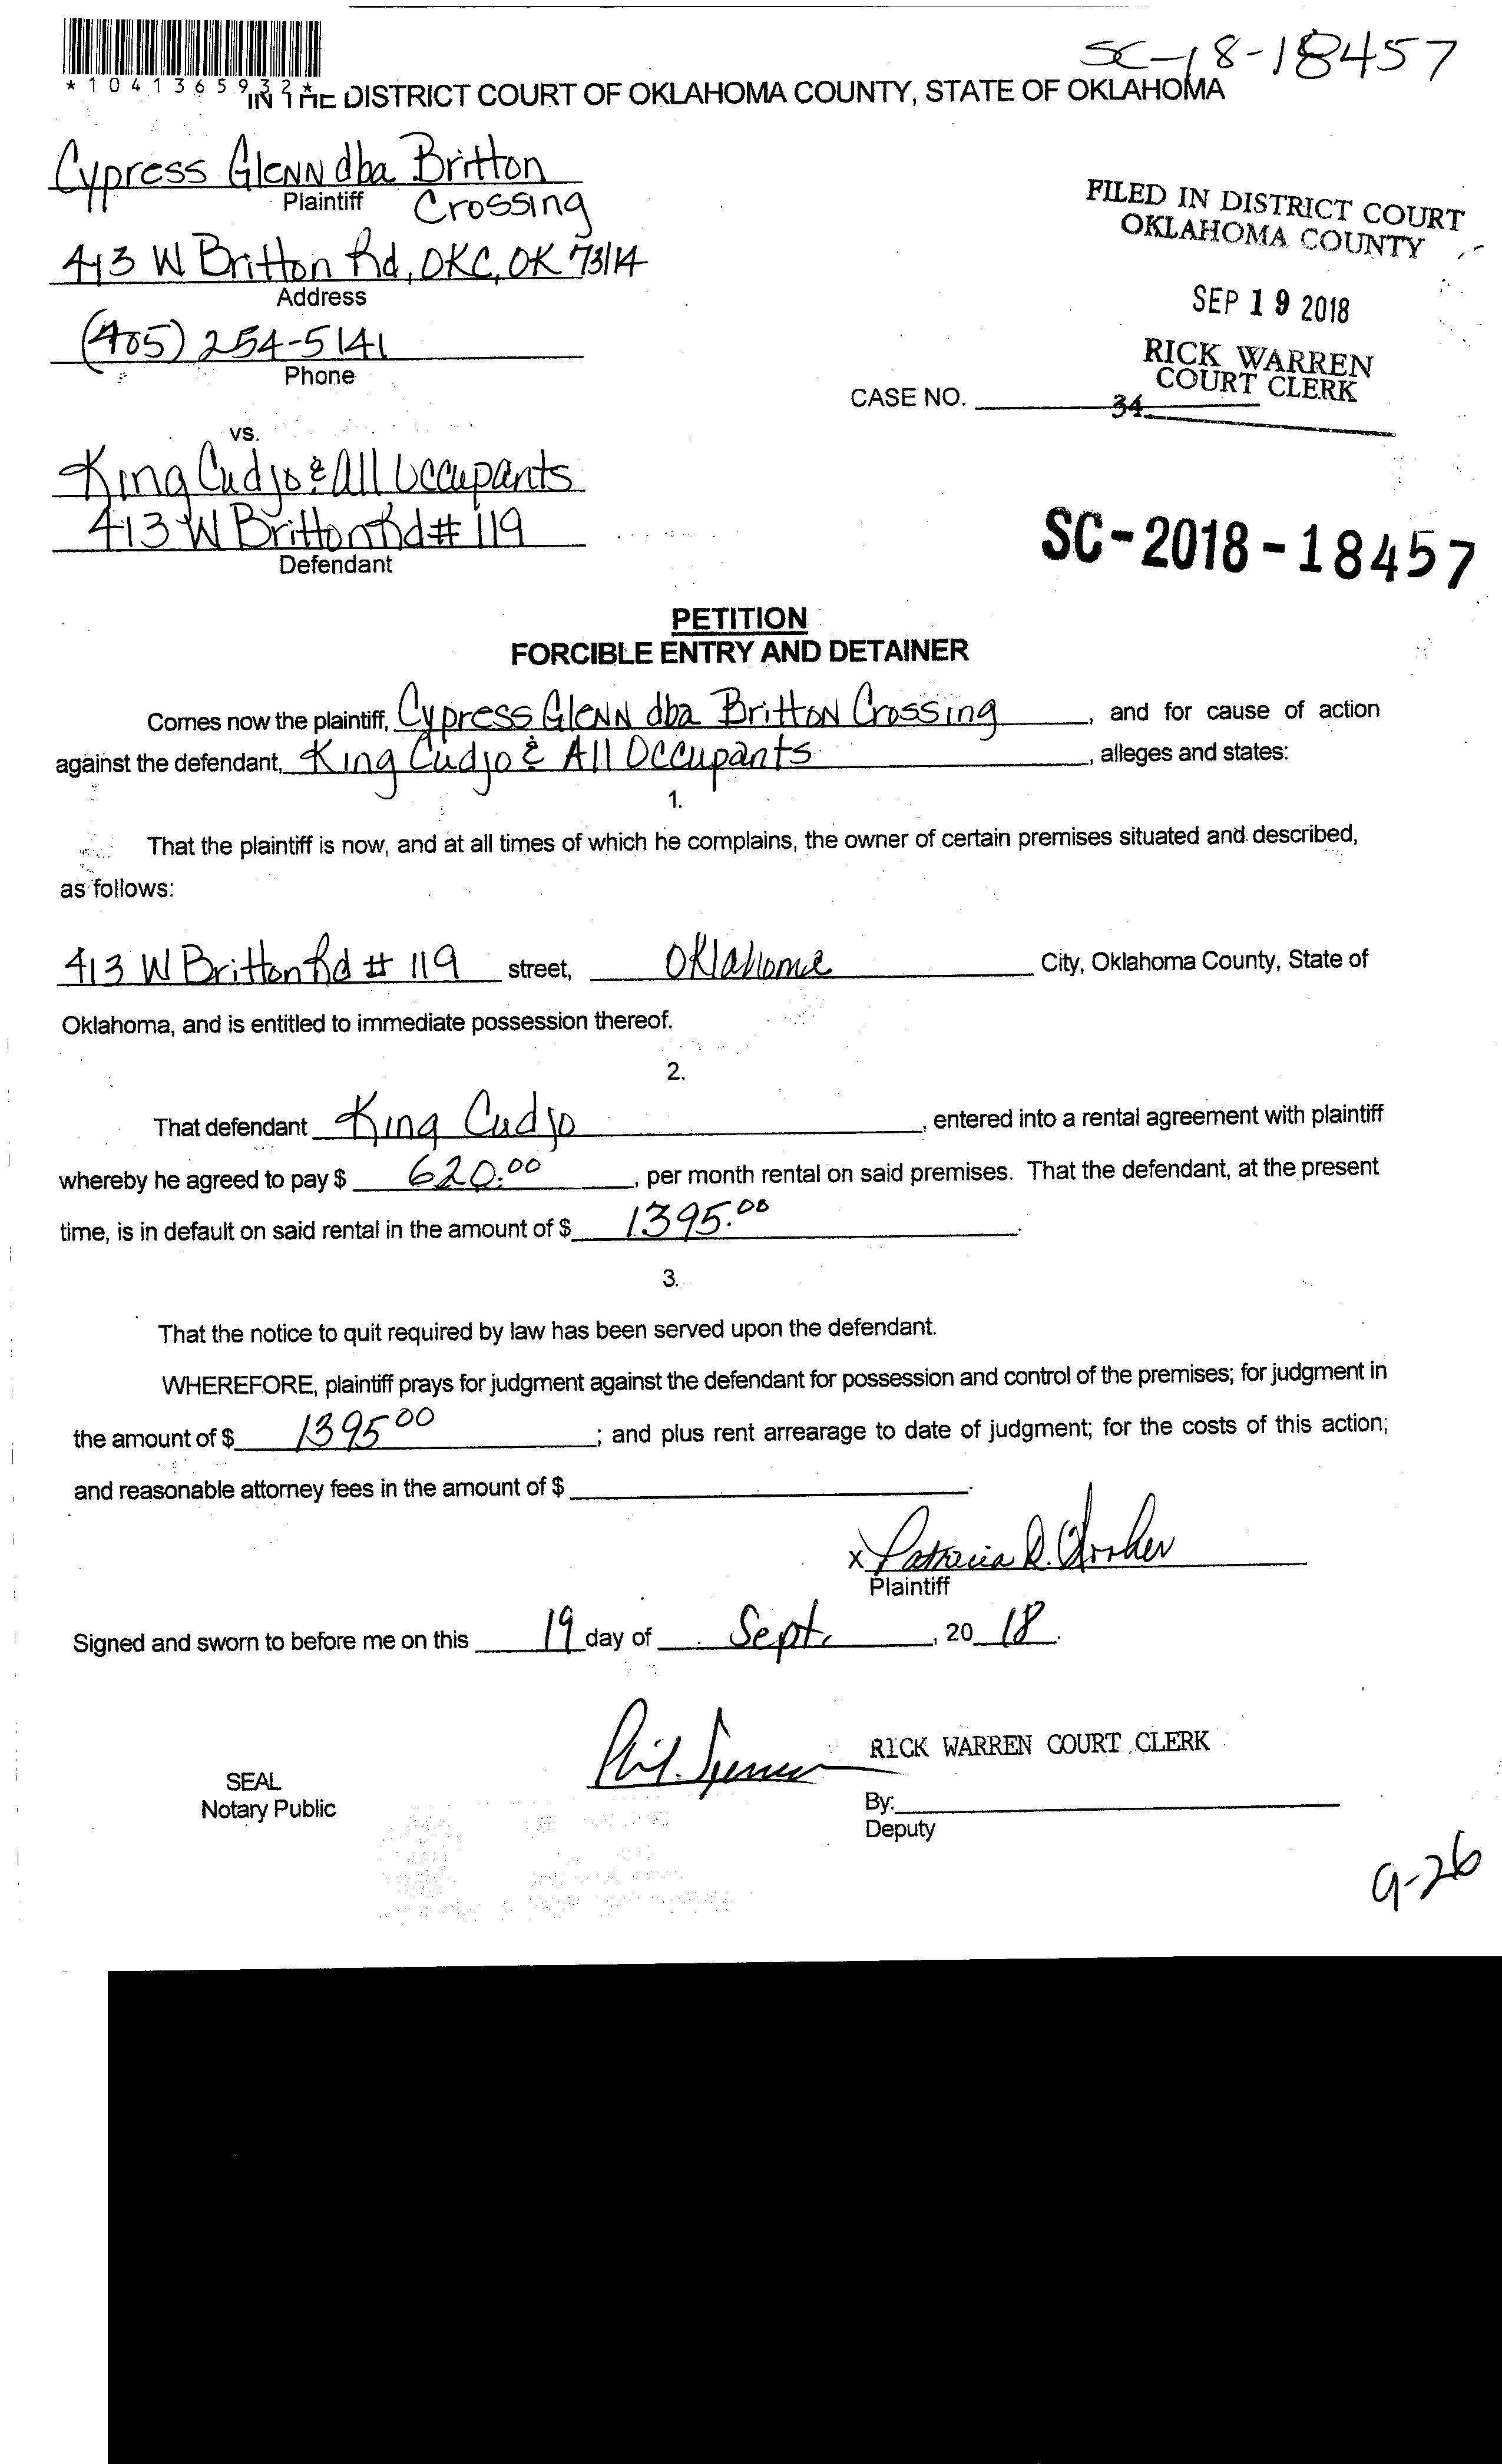 SC-18-18457
*1041365932*
IN THE DISTRICT COURT OF OKLAHOMA COUNTY, STATE OF OKLAHOMA
Cypress Glenn dba Britton
Plaintiff Crossing
413 W Britton Rd, OKC, OK 73114
Address
(405) 254-5141
Phone
FILED IN DISTRICT COURT
OKLAHOMA COUNTY
SEP 19 2018
RICK WARREN
COURT CLERK
CASE NO. 34
vs.
King Cudjo & All Occupants
413 W Britton Rd # 119
Defendant
SC-2018-18457
PETITION
FORCIBLE ENTRY AND DETAINER
Comes now the plaintiff, Cypress Glenn dba Britton Crossing, and for cause of action
against the defendant, King Cudjo & All Occupants, alleges and states:
1.
That the plaintiff is now, and at all times of which he complains, the owner of certain premises situated and described,
as follows:
413 W Britton Rd # 119 street, Oklahoma City, Oklahoma County, State of
Oklahoma, and is entitled to immediate possession thereof.
2.
That defendant King Cudjo, entered into a rental agreement with plaintiff
whereby he agreed to pay $ 620.00, per month rental on said premises. That the defendant, at the present
time, is in default on said rental in the amount of $ 1395.00.
3.
That the notice to quit required by law has been served upon the defendant.
WHEREFORE, plaintiff prays for judgment against the defendant for possession and control of the premises; for judgment in
the amount of $ 1395 00; and plus rent arrearage to date of judgment; for the costs of this action;
and reasonable attorney fees in the amount of $ .
x Patricia R.
Plaintiff
Signed and sworn to before me on this 19 day of Sept., 20 18.
Phil Spencer
RICK WARREN COURT CLERK
SEAL
Notary Public
By:
Deputy
9-26